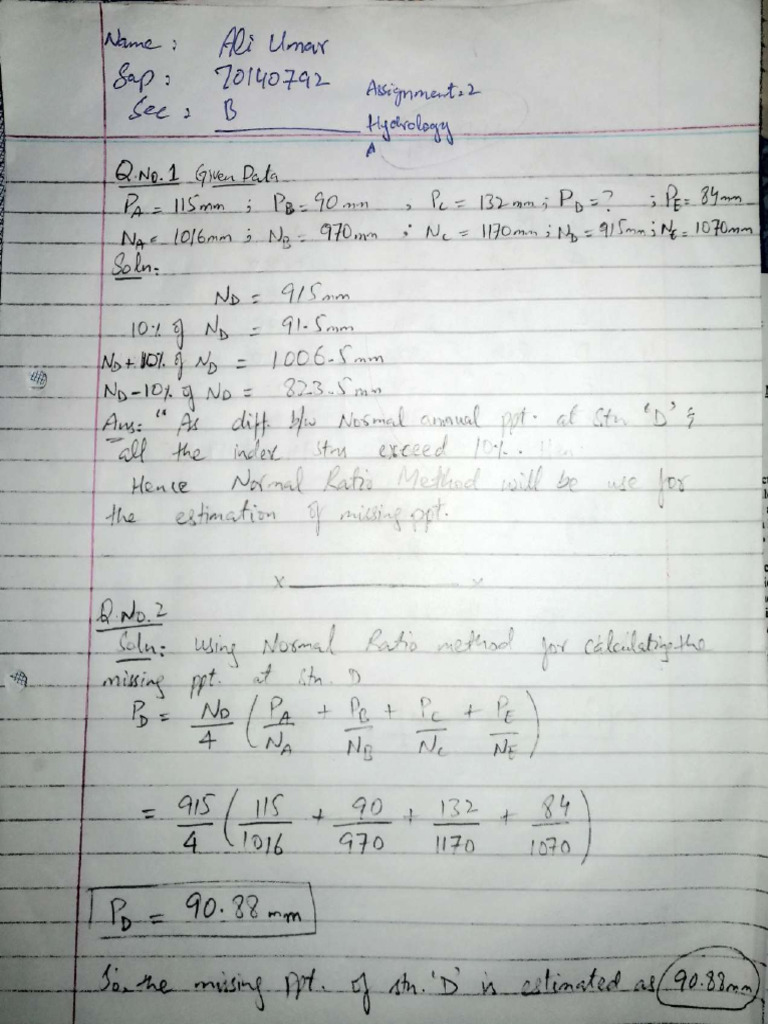 Name : Ali Umar
Sap : 70140792
Sec : B
Assignment : 2
Hydrology
A
Q.No.1 Given Data
PA = 115mm ; PB = 90 mm , PC = 132 mm ; PD = ? ; PE = 84mm
NA = 1016mm ; NB = 970mm ; NC = 1170mm ; ND = 915mm ; NE = 1070mm
Soln:
ND = 915mm
10% of ND = 91.5mm
ND + 10% of ND = 1006.5 mm
ND - 10% of ND = 823.5 mm
Ans: " As diff. b/w Normal annual ppt. at Stn 'D' &
all the index stns exceed 10%. Hen
Hence Normal Ratio Method will be use for
the estimation of missing ppt.
x x
Q.No.2
Soln: Using Normal Ratio method for calculating the
missing ppt. at Stn. D
PD = ND/4 ( PA/NA + PB/NB + PC/NC + PE/NE )
= 915/4 ( 115/1016 + 90/970 + 132/1170 + 84/1070 )
PD = 90.88 mm
So, the missing ppt. of stn. 'D' is estimated as 90.88mm